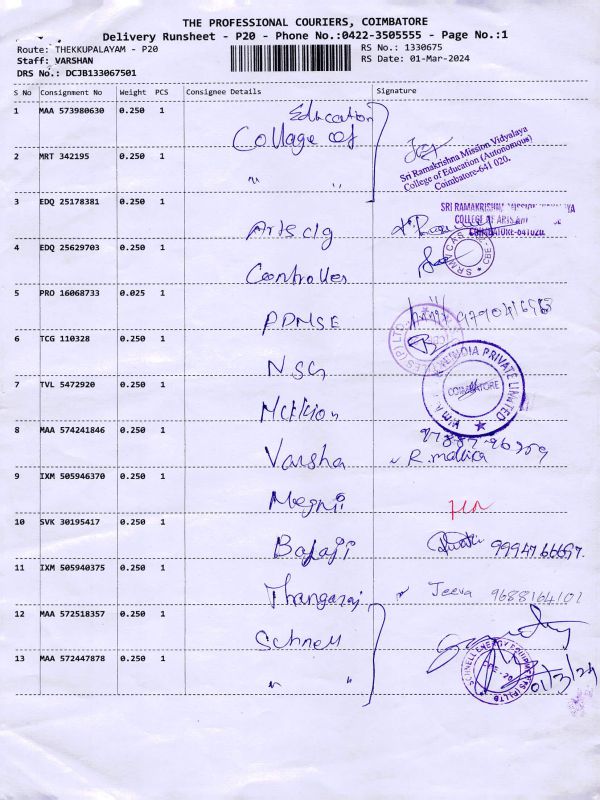 THE PROFESSIONAL COURIERS, COIMBATORE
Delivery Runsheet - P20 - Phone No.:0422-3505555 - Page No.:1
Route: THEKKUPALAYAM - P20
RS No.: 1330675
Staff: VARSHAN
RS Date: 01-Mar-2024
DRS No.: DCJB133067501
S No Consignment No Weight PCS Consignee Details Signature
1 MAA 573980630 0.250 1 Education
College of
Sri Ramakrishna Mission Vidyalaya
College of Education (Autonomous)
Coimbatore-641 020.
2 MRT 342195 0.250 1 " "
3 EDQ 25178381 0.250 1 Arts clg
SRI RAMAKRISHNA MISSION
COLLEGE OF ARTS AND
COIMBATORE-641020.
4 EDQ 25629703 0.250 1 Controller
5 PRO 16068733 0.025 1 PDMSE
6 TCG 110328 0.250 1 NSG
7 TVL 5472920 0.250 1
PRIVATE LIMITED
COIMBATORE
8 MAA 574241846 0.250 1 Varsha R. mallika
9 IXM 505946370 0.250 1
10 SVK 30195417 0.250 1 Balaji
11 IXM 505940375 0.250 1 Thangaraj Jeeva 9688164101
12 MAA 572518357 0.250 1 Schnell
SCHNELL ENERGY EQUIPMENTS (P) LTD
13 MAA 572447878 0.250 1 " " 01/3/24